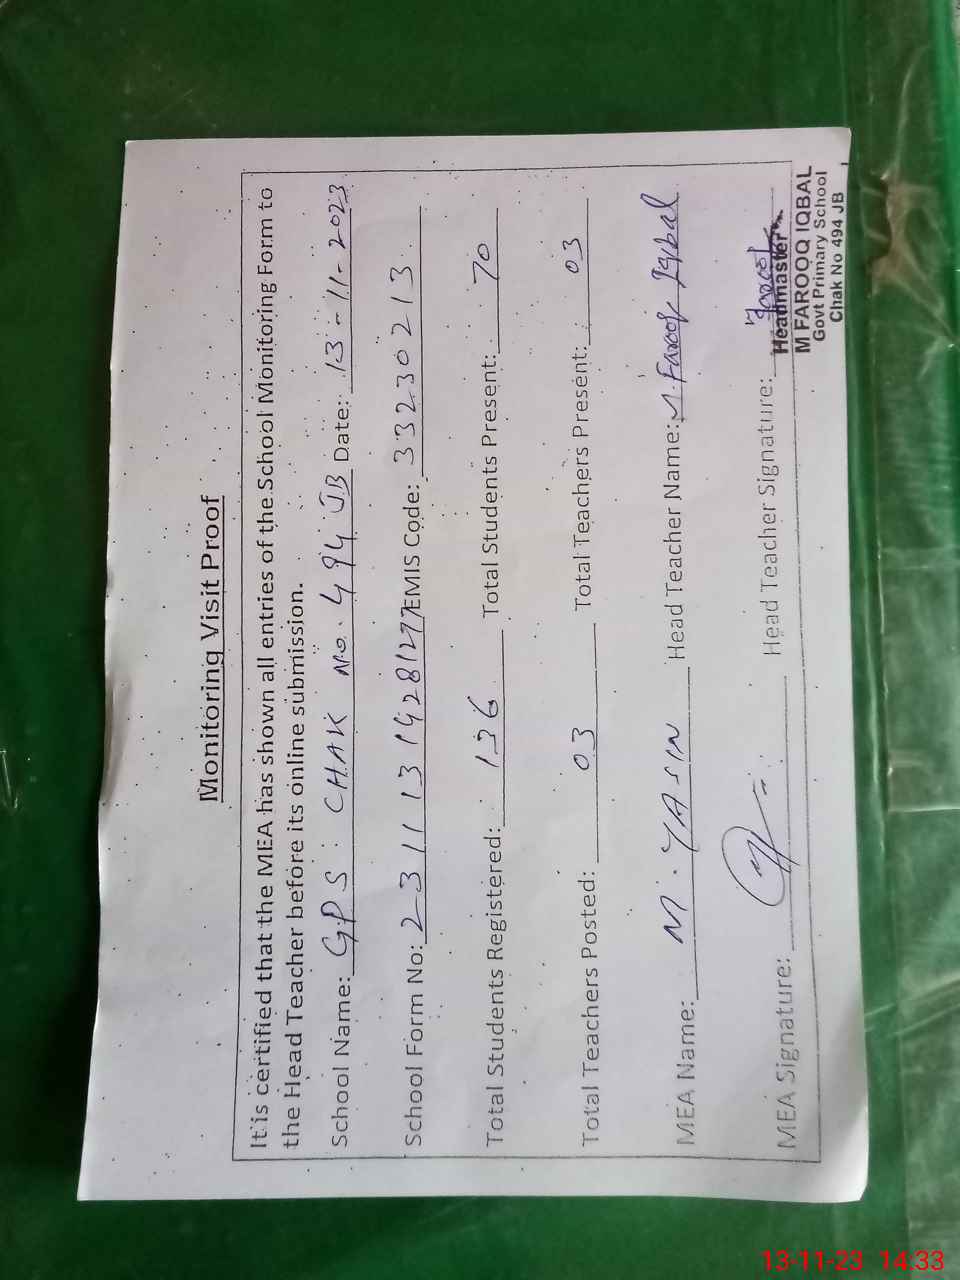 Monitoring Visit Proof
It is certified that the MEA has shown all entries of the School Monitoring Form to
the Head Teacher before its online submission.
School Name: GPS CHAK No. 494 JB Date: 13-11-2023
School Form No: 23 11 13 14281277 EMIS Code: 33230213
Total Students Registered: 136 Total Students Present: 70
Total Teachers Posted: 03 Total Teachers Present: 03
MEA Name: M. YASIN Head Teacher Name: M. Farooq Iqbal
MEA Signature: Head Teacher Signature: Farooq
Headmaster
M FAROOQ IQBAL
Govt Primary School
Chak No 494 JB
13-11-23 14:33